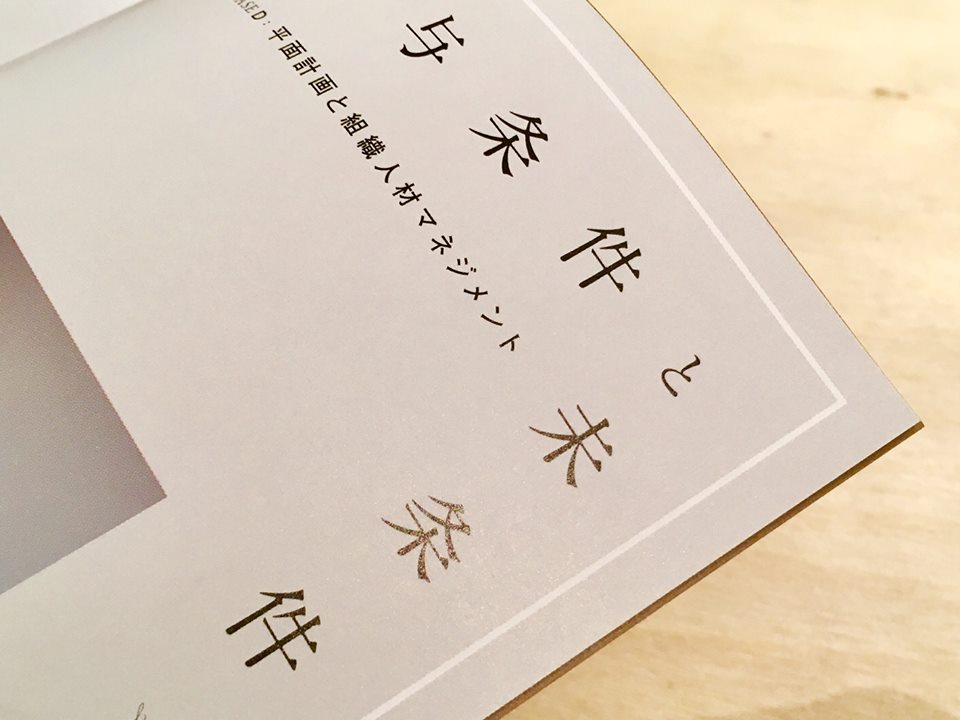 与条件と未条件
D：平面計画と組織人材マネジメント